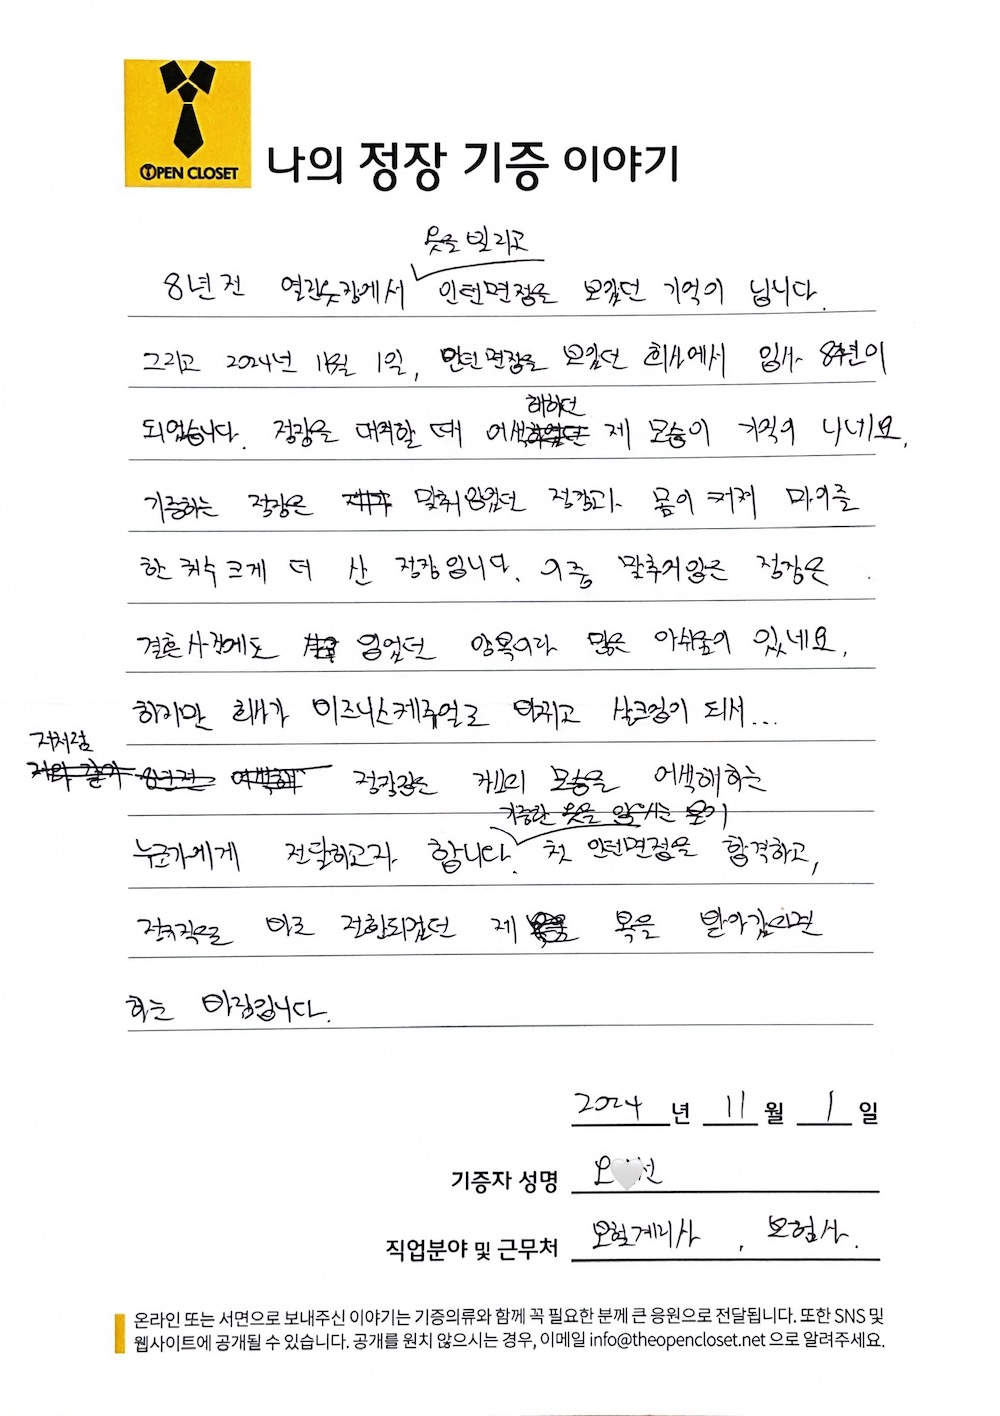 OPEN CLOSET
나의 정장 기증 이야기
옷을 빌리고
8년 전 열린옷장에서 인턴면접을 보았던 기억이 납니다.
그리고 2024년 11월 1일, 인턴면접을 보았던 회사에서 입사 8주년이
되었습니다. 정장을 대여할 때 어색해하던 제 모습이 기억이 나네요.
기증하는 정장은 맞춰 입었던 정장과 몸이 커져 마이를
한 치수 크게 더 산 정장입니다. 이중 맞추어입은 정장은
결혼사진에도 입었던 양복이라 많은 아쉬움이 있네요.
하지만 회사가 비즈니스케쥬얼로 바뀌고 살크업이 되서...
저처럼
정장입은 자신의 모습을 어색해하는
기증한 옷을 입으시는 분이
누군가에게 전달하고자 합니다. 첫 인턴면접을 합격하고,
정규직으로 바로 전환되었던 제 복을 받아갔으면
하는 바람입니다.
2024 년 11 월 1 일
기증자 성명 오 선
직업분야 및 근무처 보험계리사, 보험사.
온라인 또는 서면으로 보내주신 이야기는 기증의류와 함께 꼭 필요한 분께 큰 응원으로 전달됩니다. 또한 SNS 및
웹사이트에 공개될 수 있습니다. 공개를 원치 않으시는 경우, 이메일 info@theopencloset.net 으로 알려주세요.